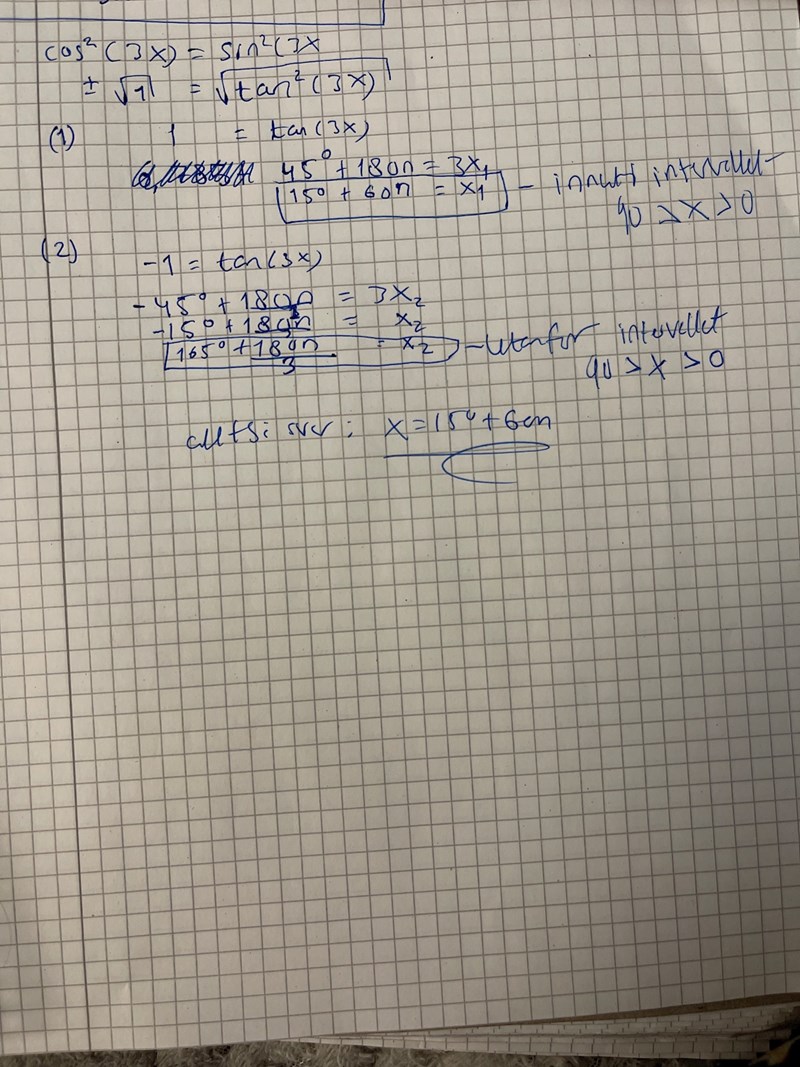 cos² (3x) = sin²(3x
± √1 = √tan² (3x)
(1) 1 = tan(3x)
45° + 180n = 3x₁
15° + 60n = x₁ - innuti intervallet
90 > x > 0
(2) -1 = tan(3x)
-45° + 180n = 3x₂
-15° + 180n/3 = x₂
165° + 180n/3 = x₂ - utanför intervallet
90 > x > 0
alltså svar: x = 15° + 60n